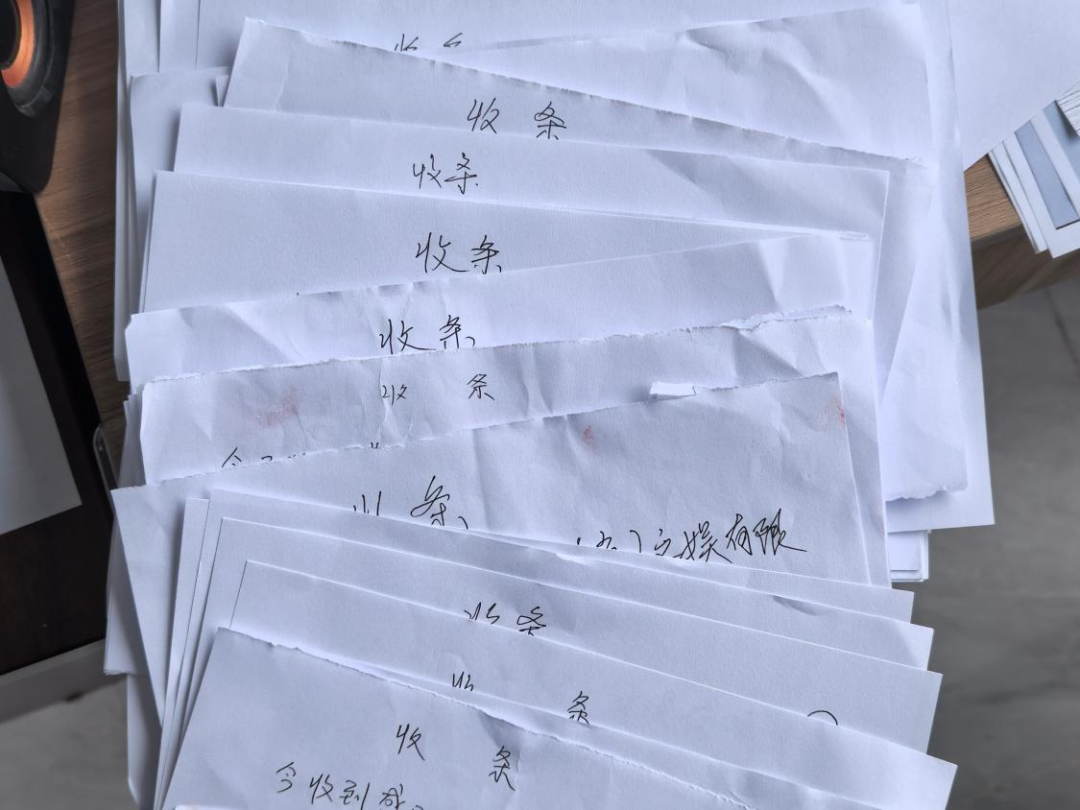 收条
收条
收条
收条
收条
收条
文娱有限
收条
收条
收条
今收到成